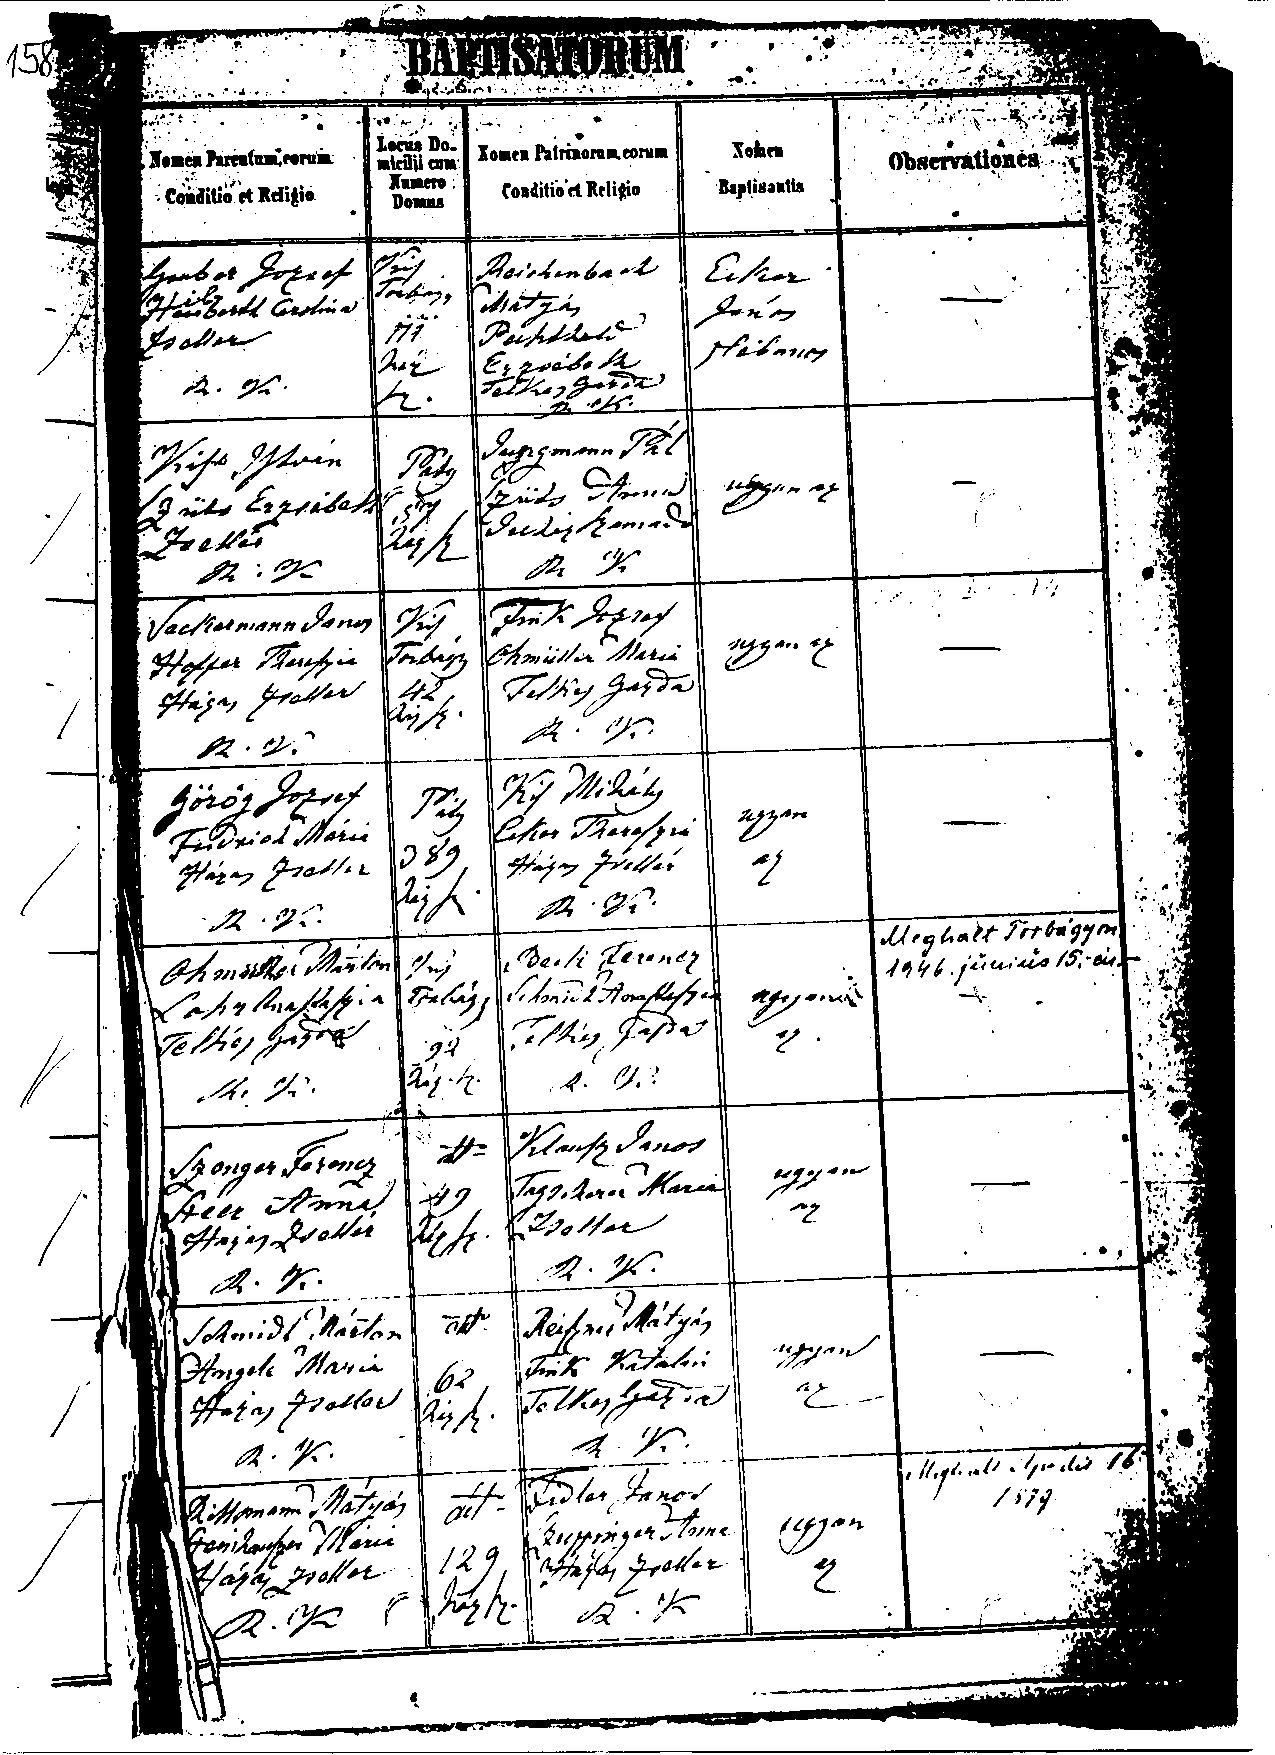 158
BAPTISATORUM
Nomen Parentum, eorum
Conditio et Religio
Locus Do-
micilii cum
Numero
Domus
Nomen Patrinorum, eorum
Conditio et Religio
Nomen
Baptisantis
Observationes
Gruber Jozsef
Carolina
Zseller
R. K.
Kis
Torbágy
111
ház
sz.
Reichenbach
Mátyás
Erzsébeth
Telkes Gazda
R. K.
Ecker
János
Plébános
—
Kiss István
Szüts Erzsébeth
Zsellér
R. K.
Páty
ház sz
Jungmann Pál
Szüts Anna
R. K.
ugyan az
—
Sackermann Janos
Hoffer Thereszia
Házas Zseller
R. K.
Kis
Torbágy
42
ház sz.
Fink Jozsef
Ohmüller Maria
Telkes Gazda
R. K.
ugyan az
—
Görög Jozsef
Fridrich Mária
Házas Zseller
R. K.
Páty
389
ház sz.
Kis Mihály
Ecker Thereszia
Házas Zsellér
R. K.
ugyan
az
—
Ohmüller Márton
Anasztazia
Telkes Gazda
R. K.
Kis
Torbágy
92
ház. sz.
Beck Ferencz
Schmidt Anasztazia
Telkes Gazda
R. K.
ugyan
az.
Meghalt Torbágyon
1946. június 15.-én
Szenger Ferencz
Heer Anna
Házas Zsellér
R. K.
dtt=
49
ház sz.
Klausz Janos
Tagscherer Maria
Zseller
R. K.
ugyan
az
—
Schmidt Márton
Angeli Maria
Házas Zseller
R. K.
dtt.
62
ház sz.
Reiszner Mátyás
Fink Katalin
Telkes Gazda
R. K.
ugyan
az
—
Rittsmann Mátyás
Mária
Házas Zseller
R. K.
dtt-
129
ház sz.
Fidler Janos
Zuppinger Anna
Házas Zseller
R. K
ugyan
az
Meghalt Aprilis 16
1879